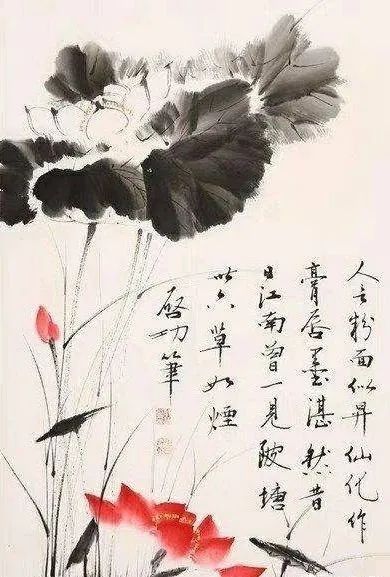 人言粉面似昇仙化作
膏唇墨湛然昔
日江南曾一見陂塘
草如煙
啟功筆